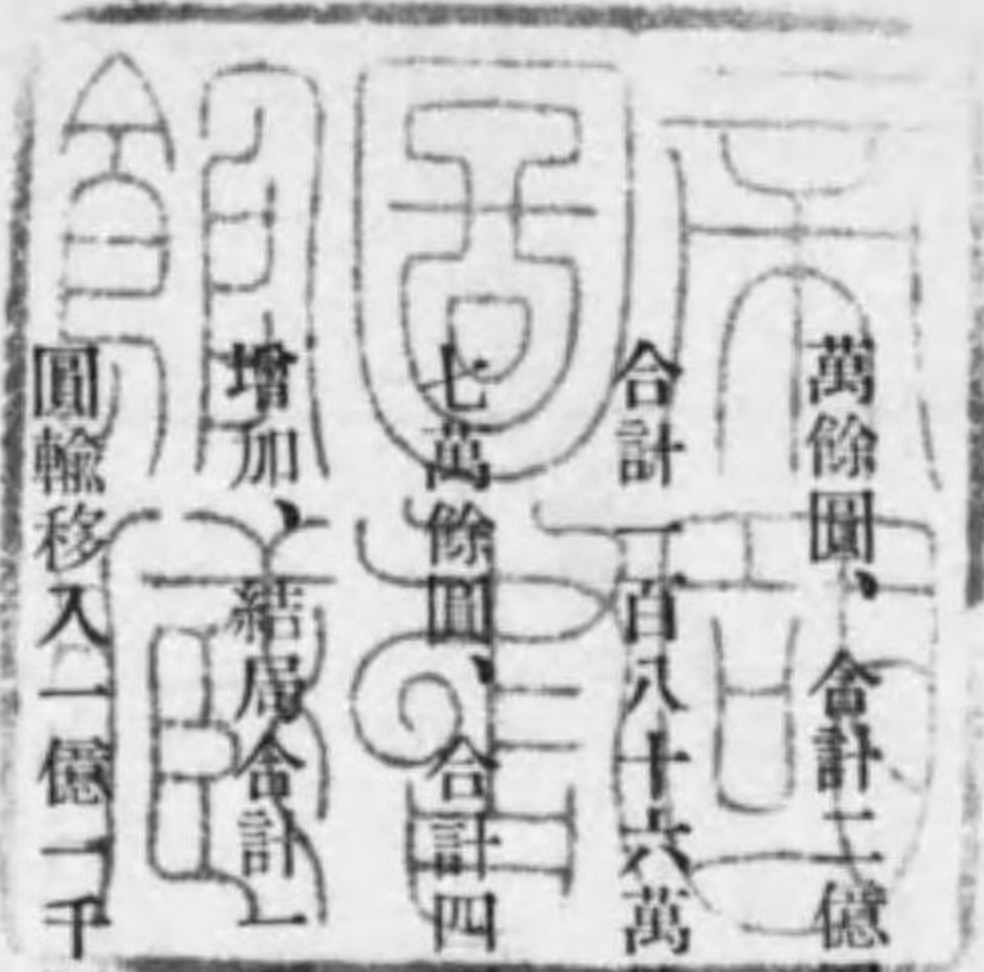 萬餘圓、合計二億
合計一百八十六萬
七萬餘圓、合計四
增加、結局合計一
圓輸移入一億二千
帝國圖書館藏